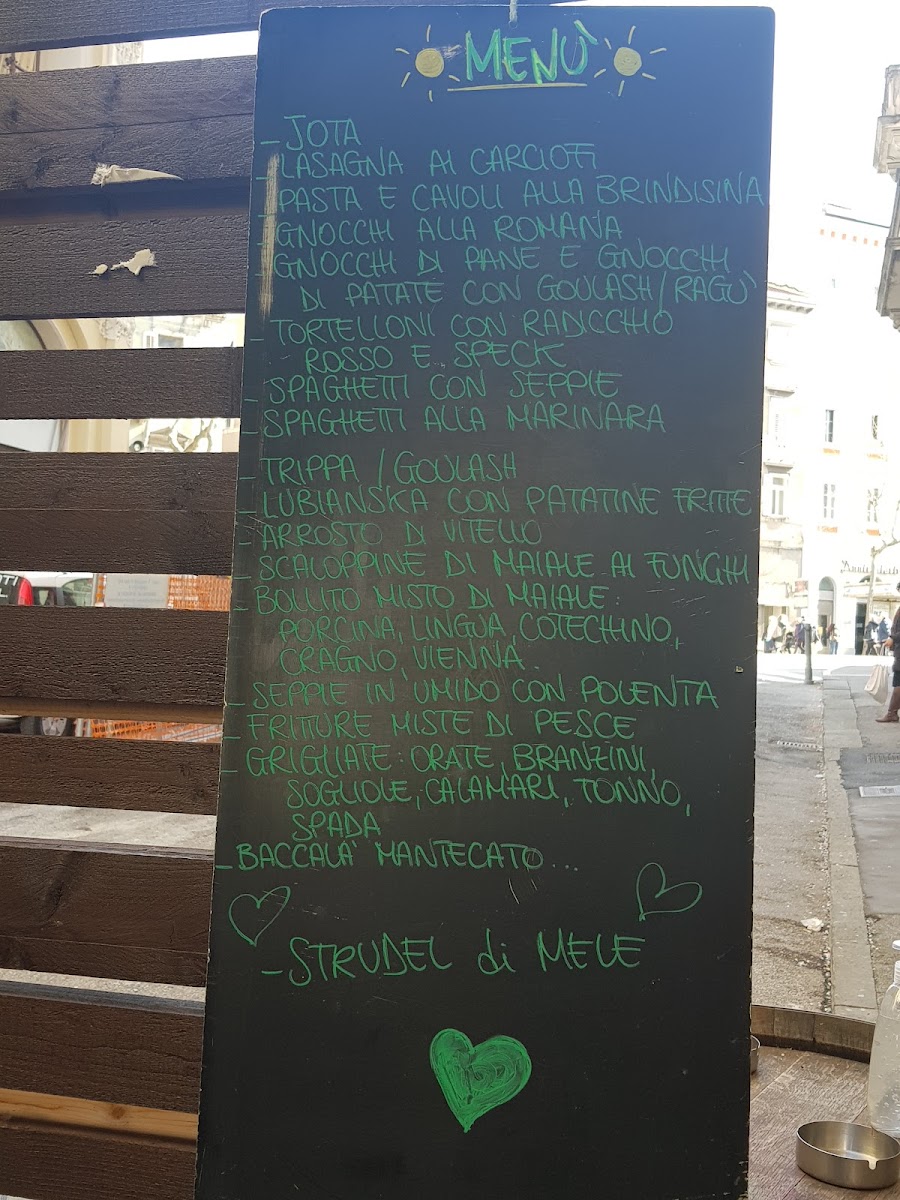 MENÙ
- JOTA
- LASAGNA AI CARCIOFI
- PASTA E CAVOLI ALLA BRINDISINA
- GNOCCHI ALLA ROMANA
- GNOCCHI DI PANE E GNOCCHI
DI PATATE CON GOULASH/RAGÙ
- TORTELLONI CON RADICCHIO
ROSSO E SPECK
- SPAGHETTI CON SEPPIE
- SPAGHETTI ALLA MARINARA
- TRIPPA / GOULASH
- LUBIANSKA CON PATATINE FRITTE
- ARROSTO DI VITELLO
- SCALOPPINE DI MAIALE AI FUNGHI
- BOLLITO MISTO DI MAIALE:
PORCINA, LINGUA, COTECHINO,
CRAGNO, VIENNA.
- SEPPIE IN UMIDO CON POLENTA
- FRITTURE MISTE DI PESCE
- GRIGLIATE: ORATE, BRANZINI,
SOGLIOLE, CALAMARI, TONNO,
SPADA
- BACCALA' MANTECATO...
- STRUDEL di MELE